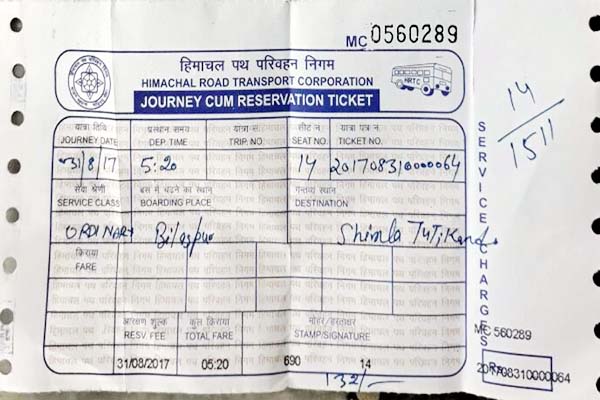 MC 0560289
हिमाचल पथ परिवहन निगम
HIMACHAL ROAD TRANSPORT CORPORATION
HRTC
JOURNEY CUM RESERVATION TICKET
यात्रा तिथि प्रस्थान समय यात्रा सं. सीट नं. यात्रा पत्र नं.
JOURNEY DATE DEP. TIME TRIP. NO. SEAT NO. TICKET NO.
31/8/17 5:20 14 20170831000064
सेवा श्रेणी बस में चढ़ने का स्थान गन्तव्य स्थान
SERVICE CLASS BOARDING PLACE DESTINATION
ORDINARY Bilaspur Shimla TUTI Kandi
किराया
FARE
आरक्षण शुल्क कुल किराया मोहर/हस्ताक्षर
RESV. FEE TOTAL FARE STAMP/SIGNATURE
31/08/2017 05:20 690 14
132/-
SERVICE CHARGES
Rs.
14
1511
MC 560289
201708310000064